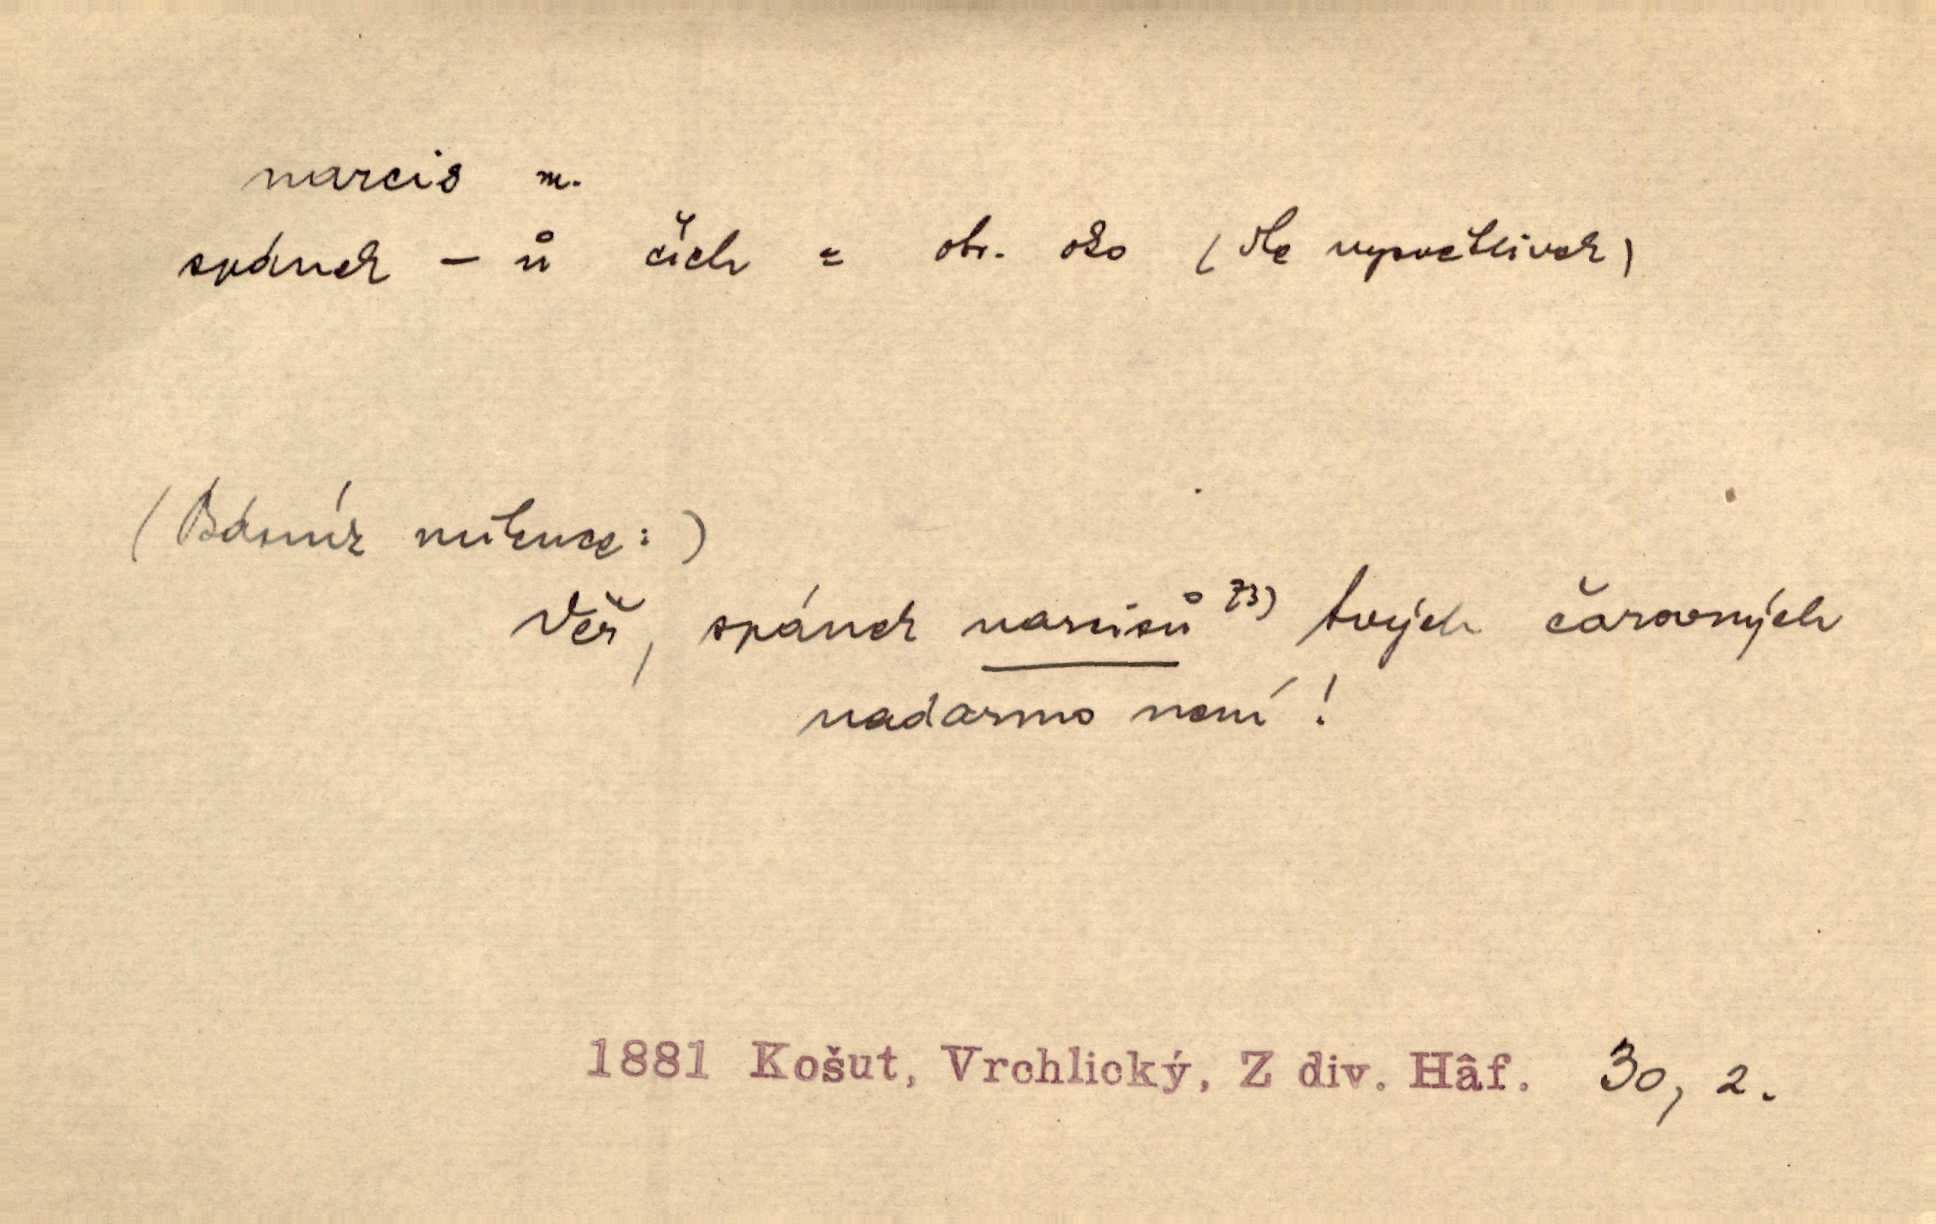 narcis m.
spánek – ů čích = obr. oko (dle vysvětlivek)
(Básník milence:)
Věř, spánek narcisů 73) tvých čarovných
nadarmo není!
1881 Košut, Vrchlický, Z div. Hâf. 30, 2.